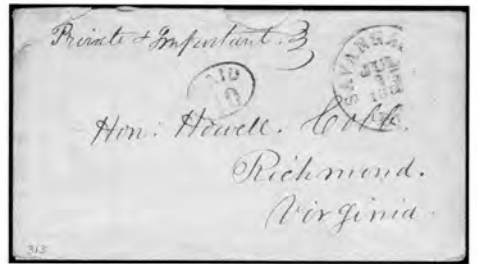 Private & Important.
PAID
10
SAVANNAH
Hon: Howell. Cobb.
Richmond.
Virginia.
313